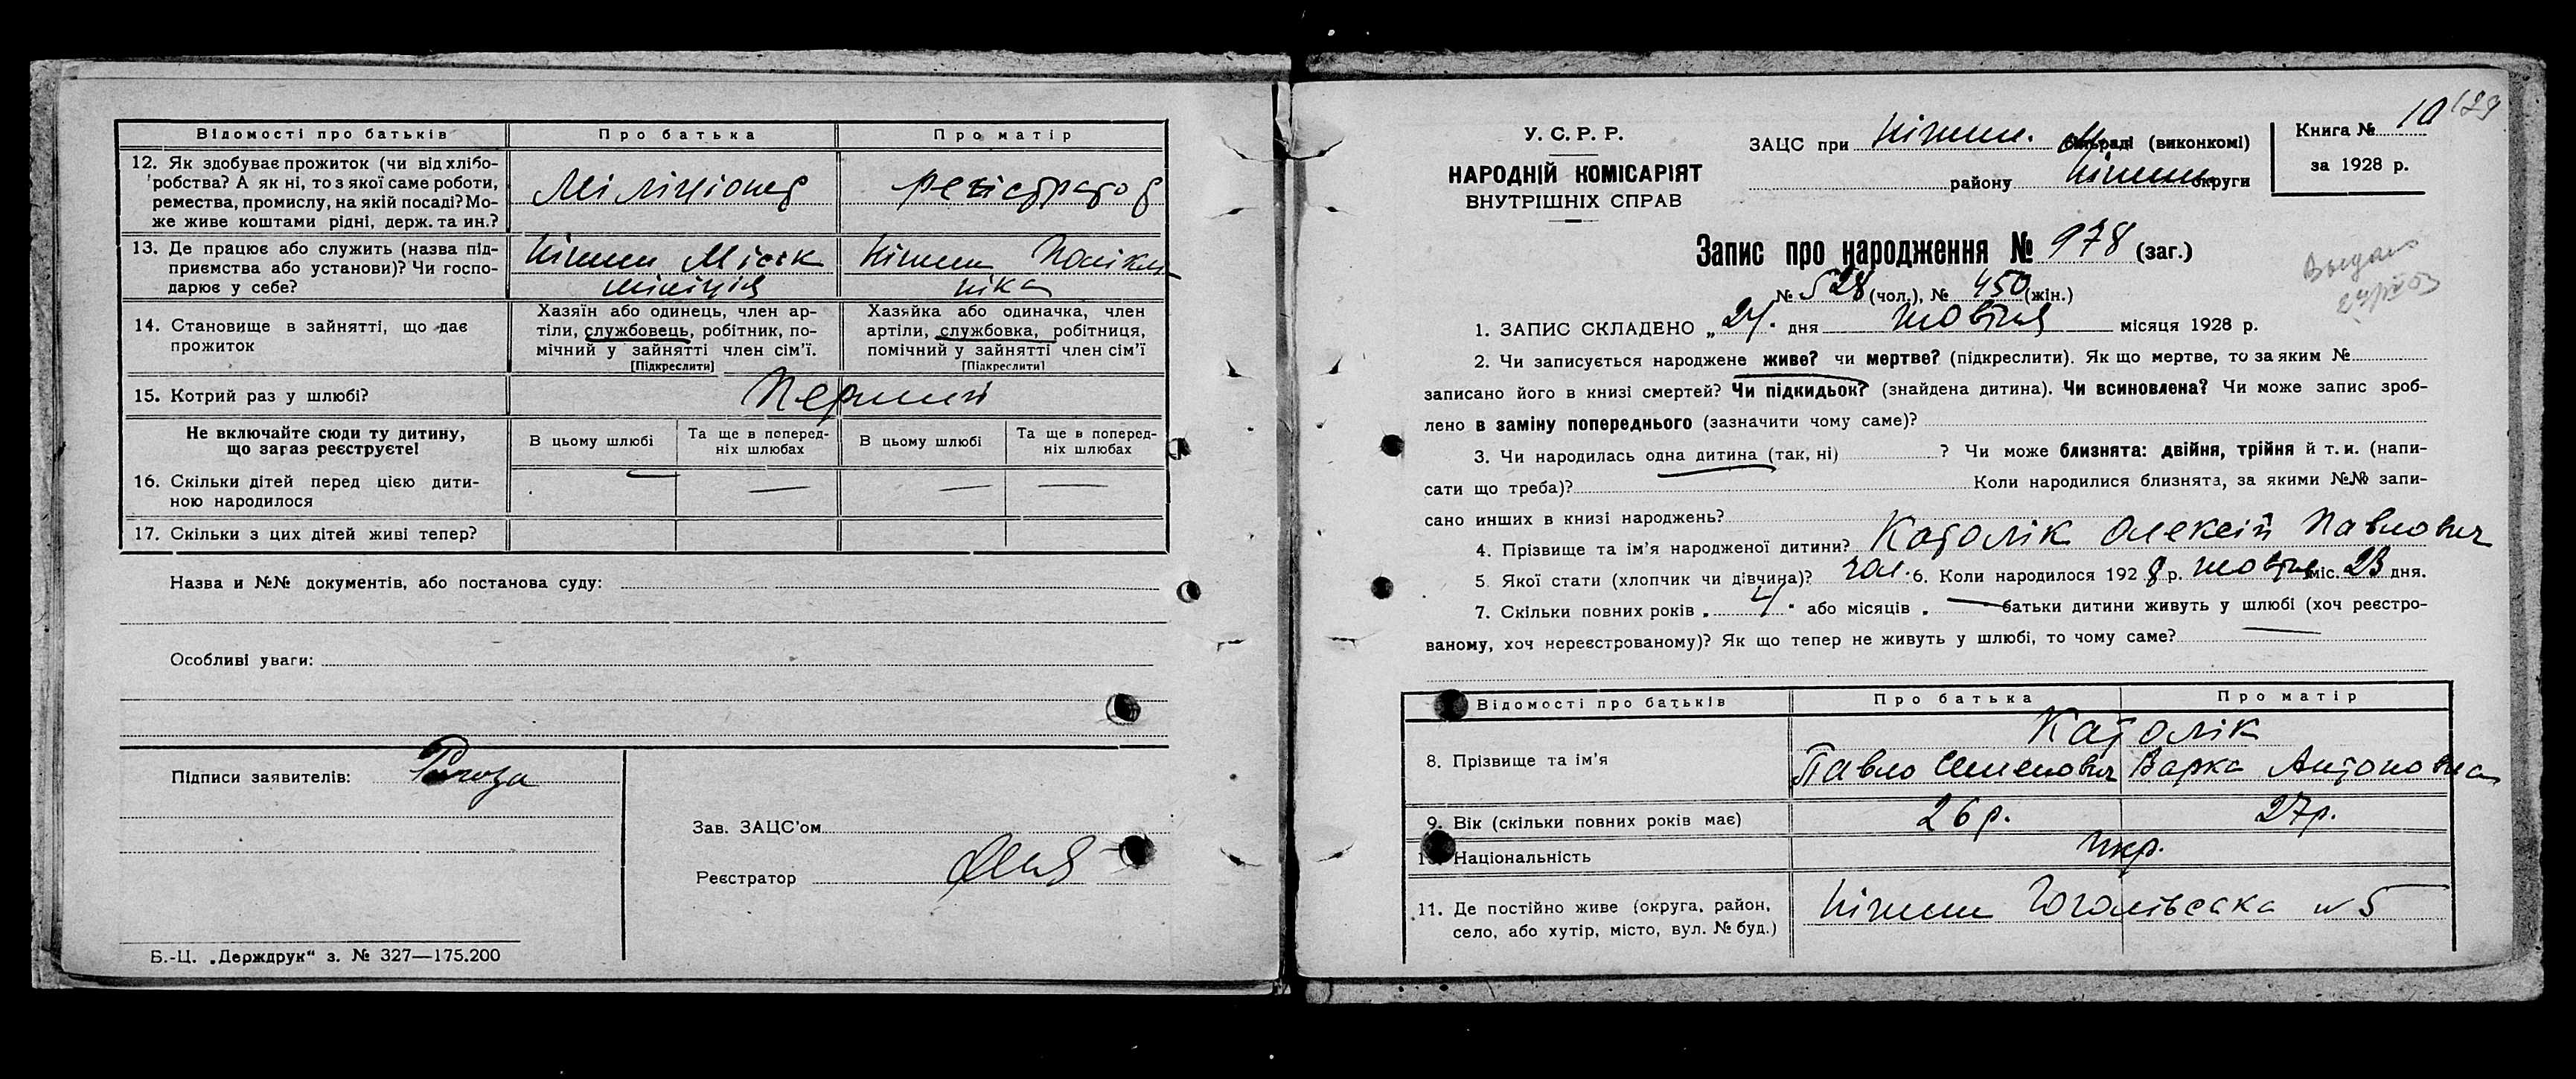 Відомості про батьків Про батька Про матір
12. Як здобуває прожиток (чи від хлібо-
робства? А як ні, то з якої саме роботи,
ремества, промислу, на якій посаді? Мо-
же живе коштами рідні, держ. та ин.?
Міліціонер регістратор
13. Де працює або служить (назва під-
приємства або установи)? Чи госпо-
дарює у себе?
Ніжин Міськ Ніжин Полікли
міліція ніка
14. Становище в зайнятті, що дає
прожиток
Хазяїн або одинець, член ар-
тіли, службовець, робітник, по-
мічний у зайнятті член сім'ї.
[Підкреслити]
Хазяйка або одиначка, член
артіли, службовка, робітниця,
помічний у зайнятті член сім'ї
[Підкреслити]
15. Котрий раз у шлюбі? Перший
Не включайте сюди ту дитину,
що зараз реєструєте!
В цьому шлюбі
Та ще в поперед-
ніх шлюбах
В цьому шлюбі
Та ще в поперед-
ніх шлюбах
16. Скільки дітей перед цією дити-
ною народилося — — — —
17. Скільки з цих дітей живі тепер?
Назва и №№ документів, або постанова суду:
Особливі уваги:
Підписи заявителів:
Зав. ЗАЦС'ом
Реєстратор
Б.-Ц. „Держдрук" з. № 327—175.200
У. С. Р. Р.
НАРОДНІЙ КОМІСАРІЯТ
ВНУТРІШНІХ СПРАВ
ЗАЦС при Ніжин. сільраді (виконкомі)
району Ніжин округи
Книга № 10
за 1928 р.
129
Запис про народження № 978 (заг.)
№ 528 (чол.), № 450 (жін.)
1. ЗАПИС СКЛАДЕНО „27" дня жовтня місяця 1928 р.
2. Чи записується народжене живе? чи мертве? (підкреслити). Як що мертве, то за яким №
записано його в книзі смертей? Чи підкидьок? (знайдена дитина). Чи всиновлена? Чи може запис зроб-
лено в заміну попереднього (зазначити чому саме)?
3. Чи народилась одна дитина (так, ні) ? Чи може близнята: двійня, трійня й т. и. (напи-
сати що треба)? Коли народилися близнята, за якими №№ запи-
сано инших в книзі народжень?
4. Прізвище та ім'я народженої дитини? Католік Олексій Павлович
5. Якої стати (хлопчик чи дівчина)? чол. 6. Коли народилося 1928 р. жовтня міс. 23 дня.
7. Скільки повних років „4" або місяців „— батьки дитини живуть у шлюбі (хоч реєстро-
ваному, хоч нереєстрованому)? Як що тепер не живуть у шлюбі, то чому саме? —
Відомості про батьків Про батька Про матір
Католік
8. Прізвище та ім'я Павло Семенович Варка Антоновна
9. Вік (скільки повних років має) 26 р. 27 р.
10. Національність Укр.
11. Де постійно живе (округа, район,
село, або хутір, місто, вул. № буд.)
Ніжин Гоголівська № 5